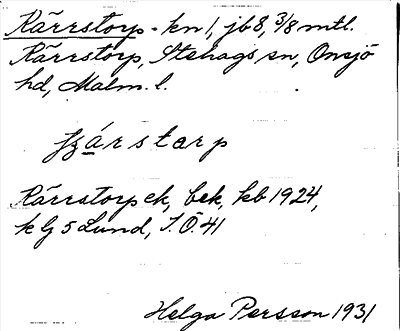 Kärrstorp - kn 1, jb 8, 3/8 mtl.
Kärrstorp, Stehags sn, Onsjö
hd, Malm. l.
Kärrstorp ek, bek, kb 1924,
k G 5 Lund, I.Ö. 41
Helga Persson 1931